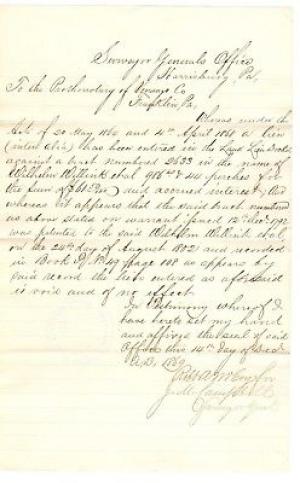 Surveyor Generals Office
Harrisburg, Pa,
To the Prothonotary of Venango Co
Franklin, Pa,
Whereas under the
Acts of 20 May 1864 and 4th April 1868 a lien
has been entered in the Land Lien Docket
against a tract numbered 2633 in the name of
Wilhelm Willink et al 986 a & 44 perches for
the sum of and accrued interest, And
whereas it appears that the said tract numbered
as above stated on warrant issued 12th Decr 1792
was patented to the said Wilhelm Willink et al,
on the 24th day of August 1802 and recorded
in Book P, No 49 page 108 as appears by
said record the lien entered as aforesaid
is void and of no effect.
In Testimony whereof I
have hereto set my hand
and affixed the seal of said
Office this 14th day of Decr
A.D. 1869
Campbell